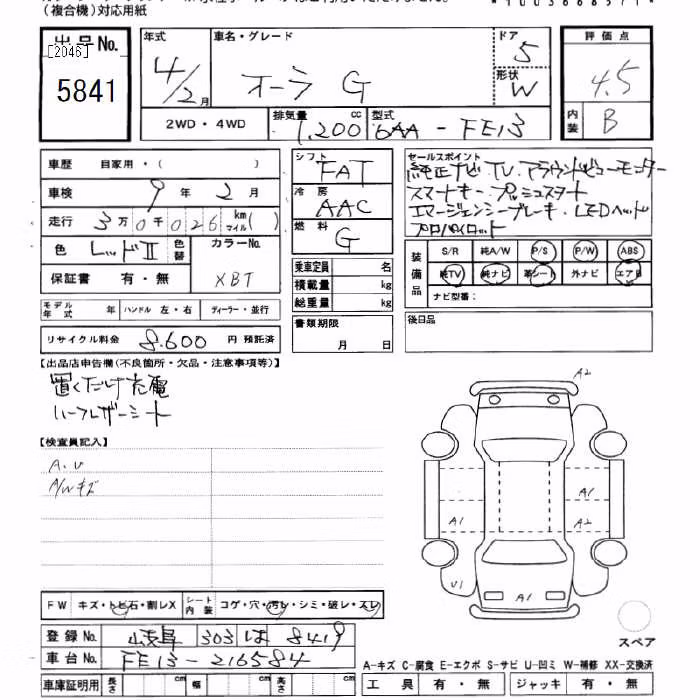 （複合機）対応用紙
出品No. 年式 車名・グレード ドア 評価点
[2046] 5841 4/2月 オーラ G 5 4.5
形状 W
2WD・4WD 排気量 1,200 cc 型式 6AA-FE13 内装 B
車歴 自家用・（ ） シフト FAT セールスポイント
純正ナビ．TV．アラウンドビューモニター
車検 9年 2月 冷房 AAC スマートキー・プッシュスタート
走行 3万0千026 km マイル( ) 燃料 G エマージェンシーブレーキ・LEDヘッド
プロパイロット
色 レッドII 色替 カラーNo. XBT
保証書 有・無
乗車定員 名
積載量 kg
総重量 kg
装備品 S/R 純A/W P/S P/W ABS
純TV 純ナビ 革シート 外ナビ エアB
ナビ型番：
モデル年式 年 ハンドル 左・右 ディーラー・並行
書類期限 月 日
後日品
リサイクル料金 8,600 円 預託済
【出品店申告欄(不良箇所・欠品・注意事項等)】
置くだけ充電
ハーフレザーシート
【検査員記入】
A.U
A/Wキズ
A2
A1
A1 A2
U1 A1
FW キズ・トビ石・割レX シート内装 コゲ・穴・汚レ・シミ・破レ・スレ
スペア
登録No. 岐阜 303 は 8419
車台No. FE13-216584
A-キズ C-腐食 E-エクボ S-サビ U-凹ミ W-補修 XX-交換済
車庫証明用 長さ cm 幅 cm 高さ cm 工具 有・無 ジャッキ 有・無